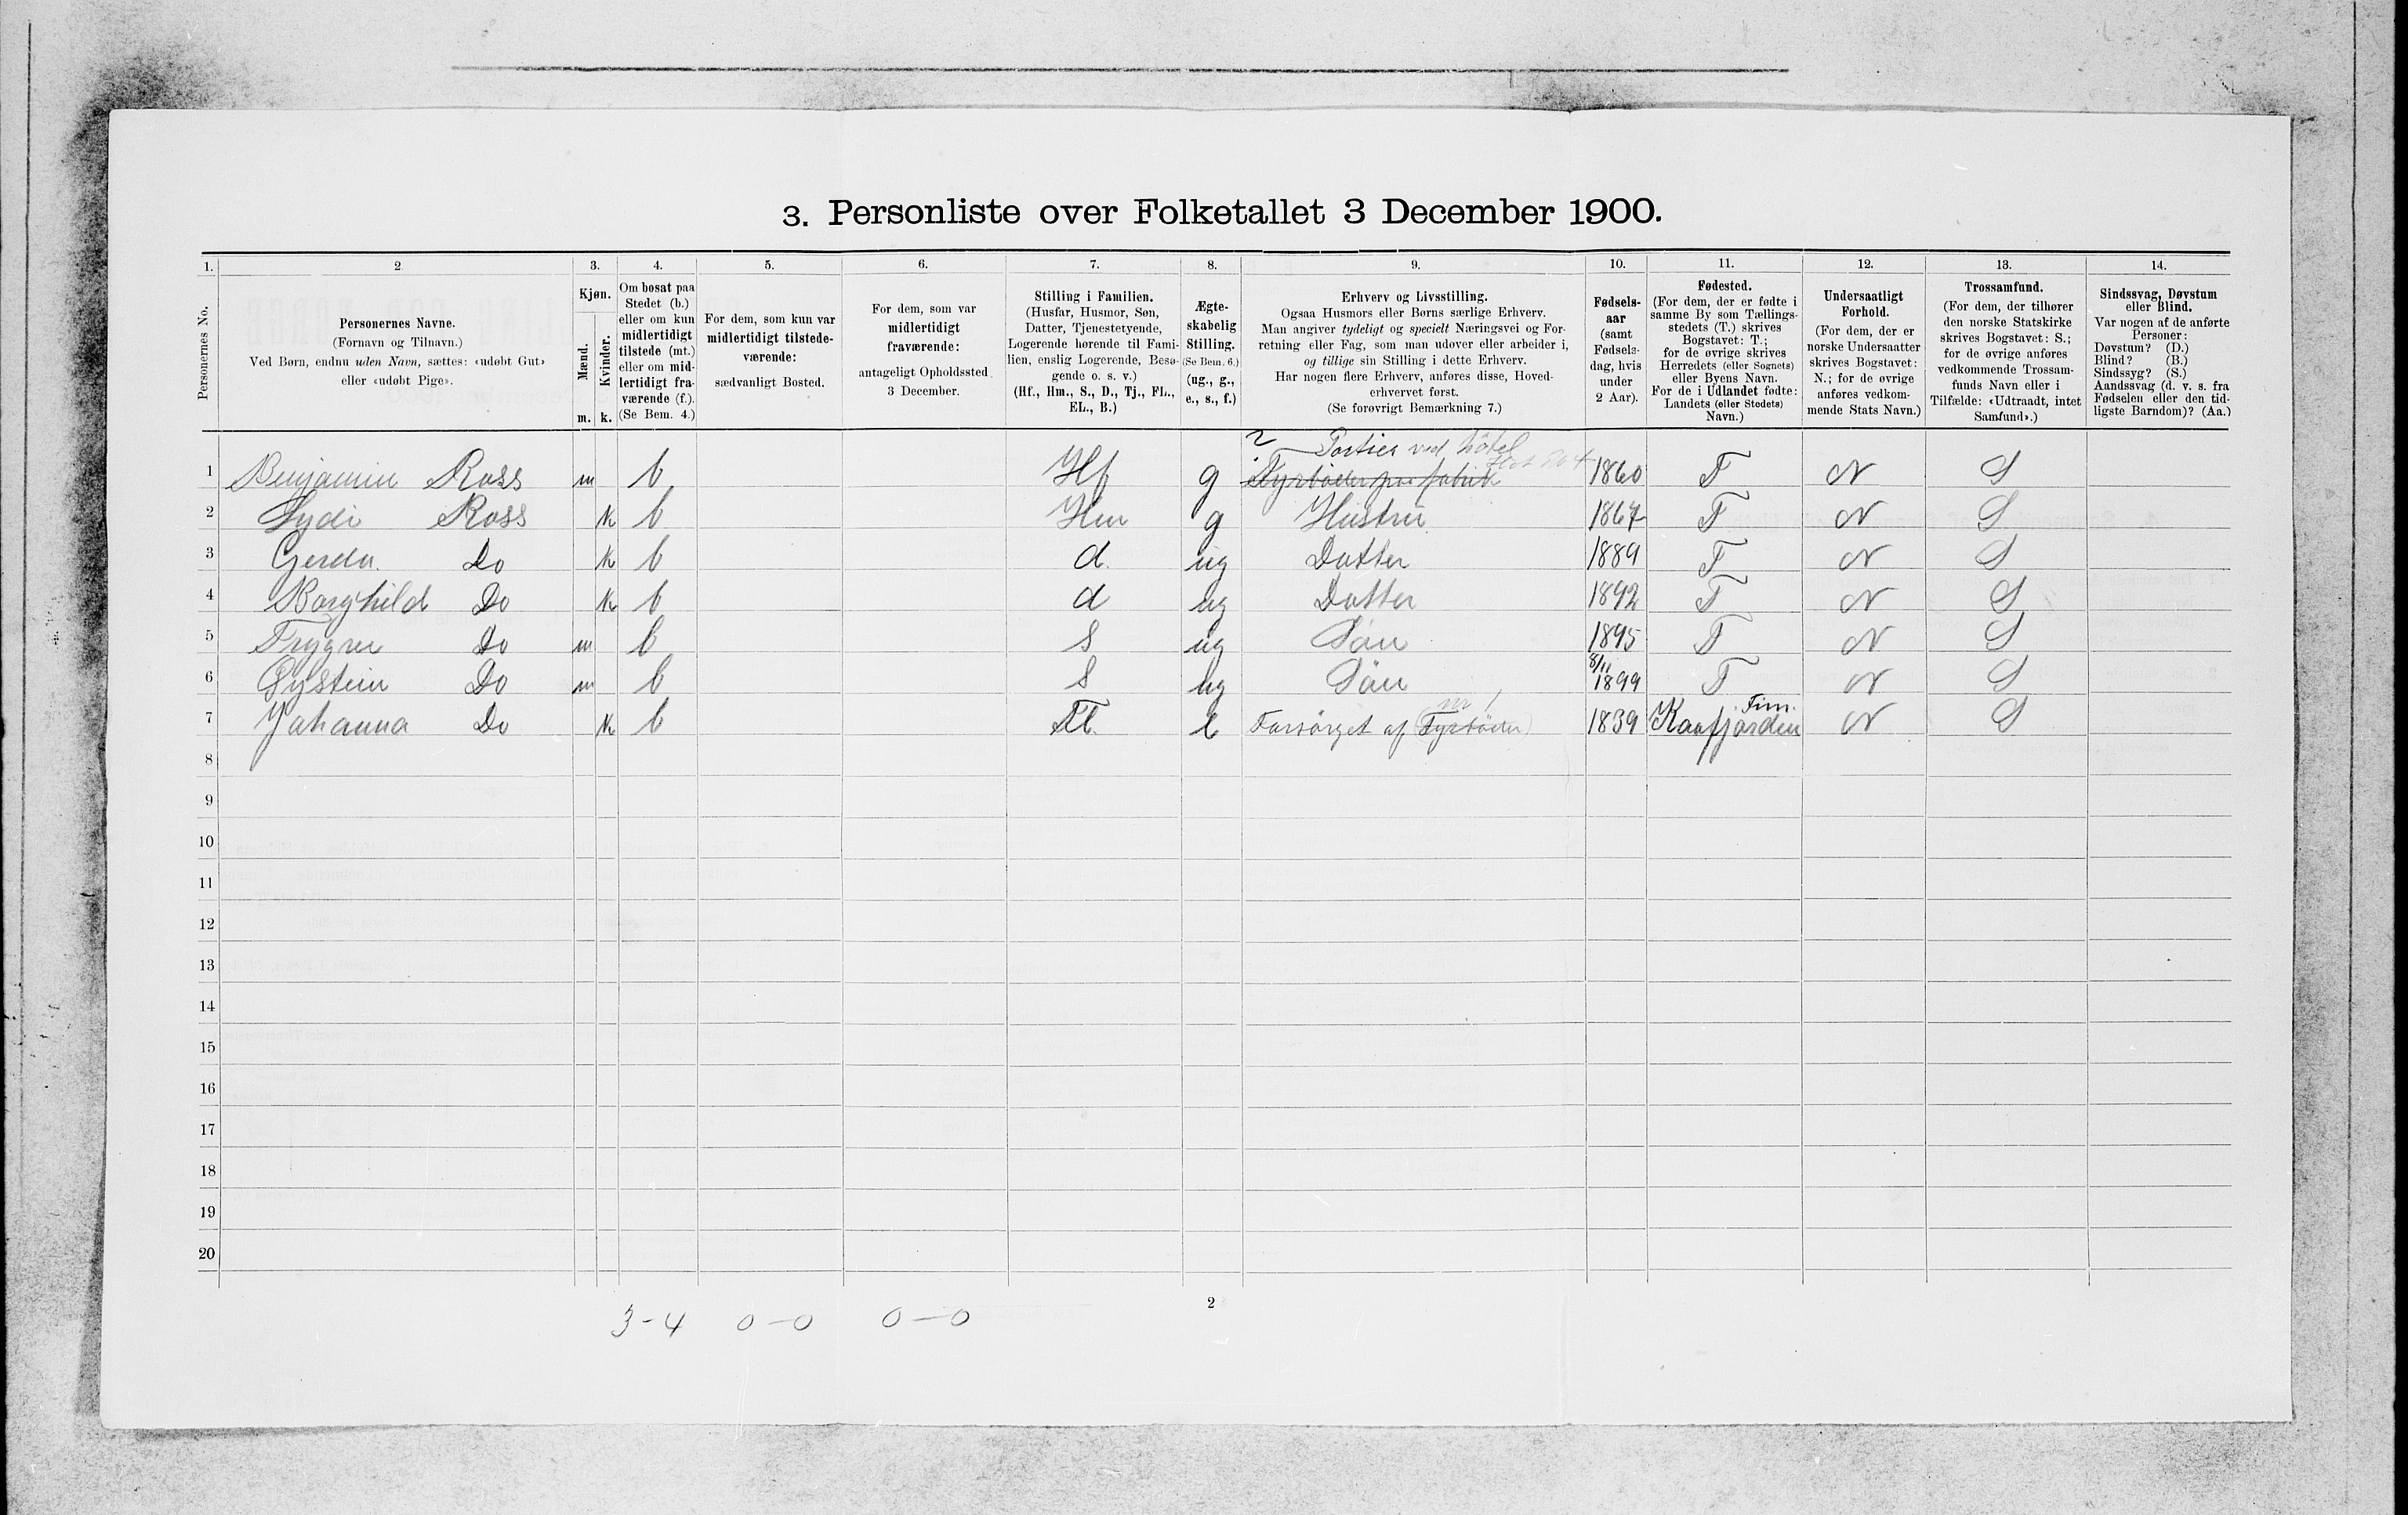 3. Personliste over Folketallet 3 December 1900.
1. 2 3. 4. 5. 6. 7. 8. 9. 10. 11. 12. 13. 14.
Personernes No.
Personernes Navne.
(Fornavn og Tilnavn.)
Ved Børn, endnu uden Navn, sættes: «udøbt Gut»
eller «udøbt Pige».
Kjøn.
Mænd.
Kvinder.
m. k.
Om bosat paa
Stedet (b.)
eller om kun
midlertidigt
tilstede (mt.)
eller om mid-
lertidigt fra-
værende (f.).
(Se Bem. 4.)
For dem, som kun var
midlertidigt tilstede-
værende:
sædvanligt Bosted.
For dem, som var
midlertidigt
fraværende:
antageligt Opholdssted
3 December.
Stilling i Familien.
(Husfar, Husmor, Søn,
Datter, Tjenestetyende,
Logerende hørende til Fami-
lien, enslig Logerende, Besø-
gende o. s. v.)
(Hf., Hm., S., D., Tj., FL.,
EL., B.)
Ægte-
skabelig
Stilling.
(Se Bem. 6.)
(ug., g.,
e., s., f.)
Erhverv og Livsstilling.
Ogsaa Husmors eller Børns særlige Erhverv.
Man angiver tydeligt og specielt Næringsvei og For-
retning eller Fag, som man udøver eller arbeider i,
og tillige sin Stilling i dette Erhverv.
Har nogen flere Erhverv, anføres disse, Hoved-
erhvervet først.
(Se forøvrigt Bemærkning 7.)
Fødsels-
aar
(samt
Fødsels-
dag, hvis
under
2 Aar).
Fødested.
(For dem, der er fødte i
samme By som Tællings-
stedets (T.) skrives
Bogstavet: T.;
for de øvrige skrives
Herredets (eller Sognets)
eller Byens Navn.
For de i Udlandet fødte:
Landets (eller Stedets)
Navn.)
Undersaatligt
Forhold.
(For dem, der er
norske Undersaatter
skrives Bogstavet:
N.; for de øvrige
anføres vedkom-
mende Stats Navn.)
Trossamfund.
(For dem, der tilhører
den norske Statskirke
skrives Bogstavet: S.;
for de øvrige anføres
vedkommende Trossam-
funds Navn eller i
Tilfælde: «Udtraadt, intet
Samfund».)
Sindssvag, Døvstum
eller Blind.
Var nogen af de anførte
Personer:
Døvstum? (D.)
Blind? (B.)
Sindssyg? (S.)
Aandssvag (d. v. s. fra
Fødselen eller den tid-
ligste Barndom)? (Aa.)
2 Portier ved hôtel
1 Benjamin Ross m b Hf g Fyrbøder paa fabrik 1860 T N S
2 Lydi Ross k b Hm g Hustru 1867 T N S
3 Gerda Do k b d. ug Datter 1889 T N S
4 Borghild Do k b d ug Datter 1892 T N S
5 Trygve Do m b S ug Søn 1895 T N S
6 Øystein Do m b S ug Søn 8/11 1899 T N S
7 Johanna Do k b Fl. e Forsørget af (Fyrbøder) nr 1 1839 Kaafjorden Fin. N S
8
9
10
11
12
13
14
15
16
17
18
19
20
2
3-4 0-0 0-0